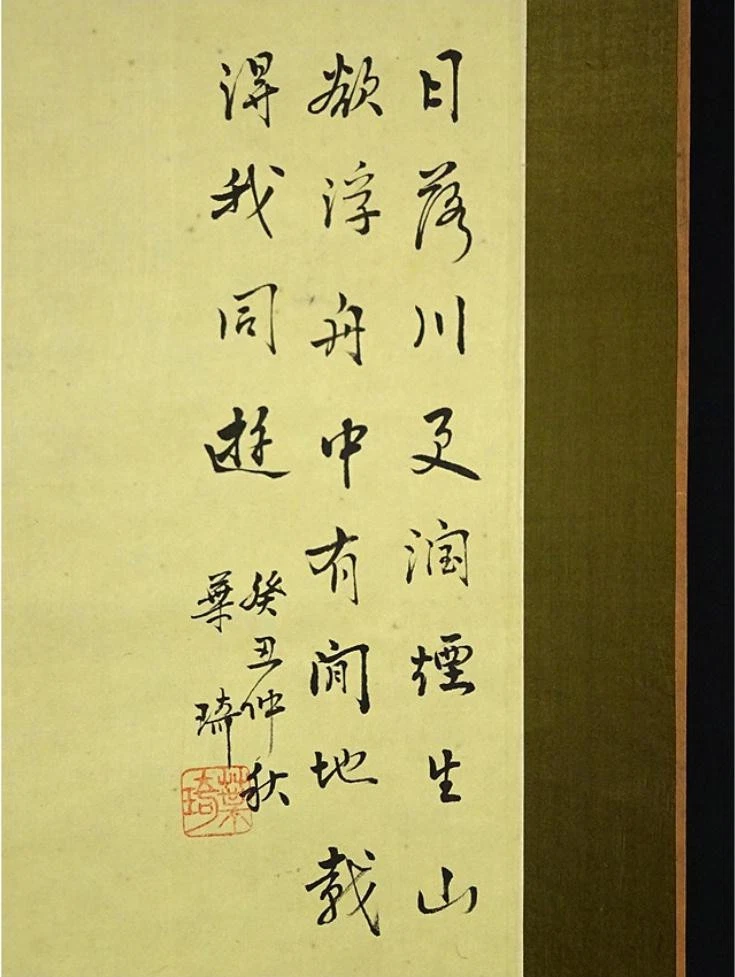 日落川更潤煙生山
欲浮舟中有閒地載
得我同遊
癸丑仲秋
葉琦
葉琦